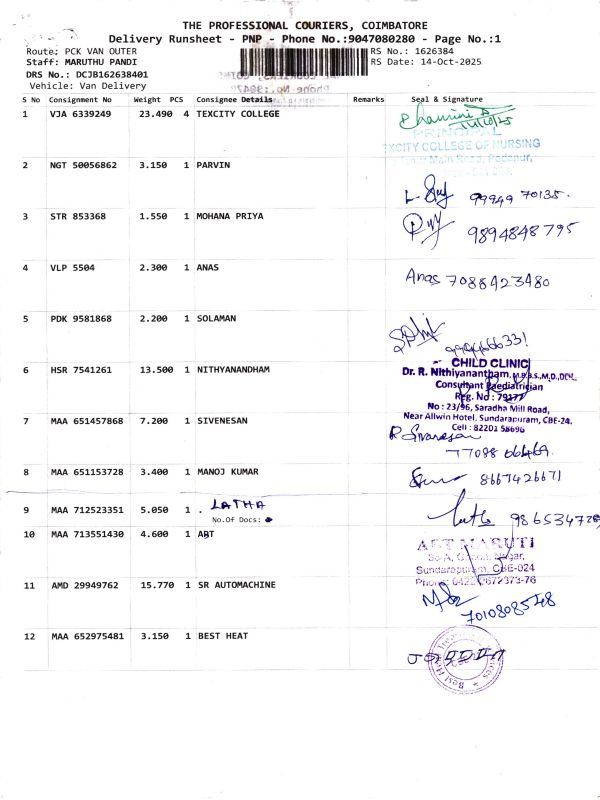 THE PROFESSIONAL COURIERS, COIMBATORE
Delivery Runsheet - PNP - Phone No.:9047080280 - Page No.:1
Route: PCK VAN OUTER RS No.: 1626384
Staff: MARUTHU PANDI RS Date: 14-Oct-2025
DRS No.: DCJB162638401
Vehicle: Van Delivery
S No Consignment No Weight PCS Consignee Details Remarks Seal & Signature
1 VJA 6339249 23.490 4 TEXCITY COLLEGE
PRINCIPAL
COLLEGE OF NURSING
Main Road, Podanur,
2 NGT 50056862 3.150 1 PARVIN
99949 70135.
3 STR 853368 1.550 1 MOHANA PRIYA
9894848795
4 VLP 5504 2.300 1 ANAS
Anas 7086423480
5 PDK 9581868 2.200 1 SOLAMAN
6 HSR 7541261 13.500 1 NITHYANANDHAM
CHILD CLINIC
Dr. R. Nithiyanantham, M.B.B.S., M.D., DCH.,
Consultant Paediatrician
Reg. No : 79177
No : 23/96, Saradha Mill Road,
Near Allwin Hotel, Sundarapuram, CBE-24.
Cell : 82201 58696
7 MAA 651457868 7.200 1 SIVENESAN
R Sivanesan
77088 66469
8 MAA 651153728 3.400 1 MANOJ KUMAR
8667426671
9 MAA 712523351 5.050 1 . LATHA
No.Of Docs:
Latha 986534728
10 MAA 713551430 4.600 1 ABT
ABT MARUTI
Nagar,
Sundarapuram, CBE-024
Phone: 0422 2672373-76
11 AMD 29949762 15.770 1 SR AUTOMACHINE
7010808548
12 MAA 652975481 3.150 1 BEST HEAT
Best Heat